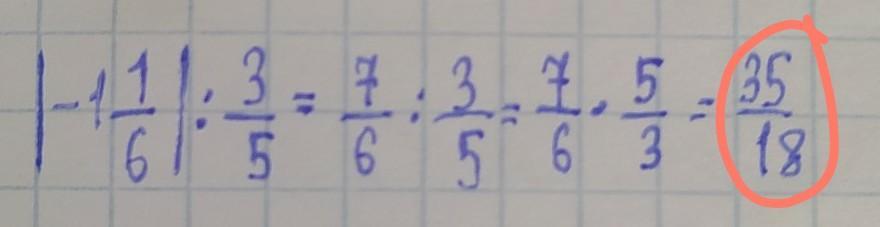 |-1 1/6| : 3/5 = 7/6 : 3/5 = 7/6 · 5/3 = 35/18